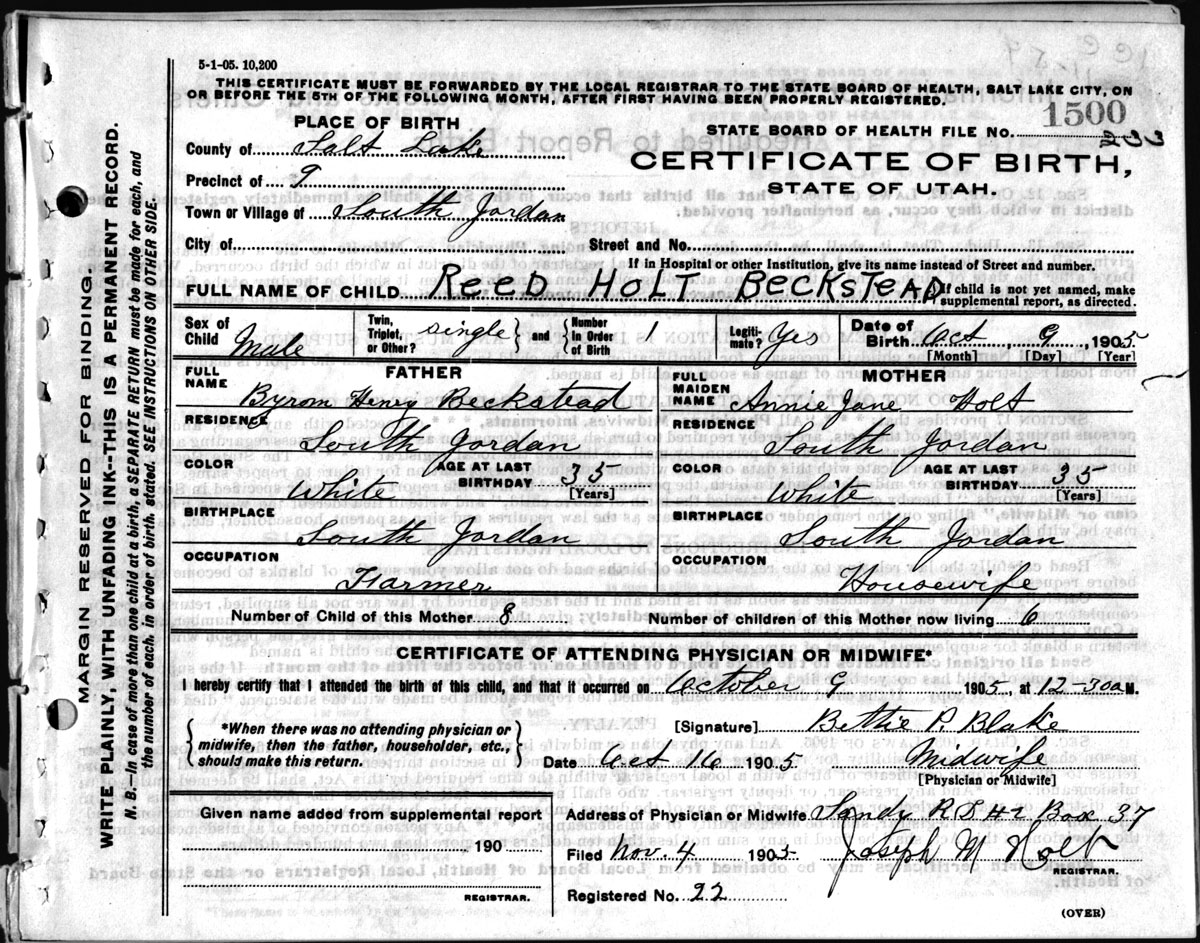 5-1-05. 10,200
THIS CERTIFICATE MUST BE FORWARDED BY THE LOCAL REGISTRAR TO THE STATE BOARD OF HEALTH, SALT LAKE CITY, ON
OR BEFORE THE 5TH OF THE FOLLOWING MONTH, AFTER FIRST HAVING BEEN PROPERLY REGISTERED.
PLACE OF BIRTH
STATE BOARD OF HEALTH FILE NO. 1500
233
County of Salt Lake
CERTIFICATE OF BIRTH,
Precinct of
STATE OF UTAH.
Town or Village of South Jordan
City of
Street and No.
If in Hospital or other Institution, give its name instead of Street and number.
FULL NAME OF CHILD REED HOLT BECKSTEAD
If child is not yet named, make supplemental report, as directed.
Sex of Child Male
Twin, Triplet, or Other? single and Number In Order of Birth 1
Legitimate? Yes
Date of Birth Oct 9, 1905
[Month] [Day] [Year]
FATHER
MOTHER
FULL NAME Byron Henry Beckstead
FULL MAIDEN NAME Annie Jane Holt
RESIDENCE South Jordan
RESIDENCE South Jordan
COLOR White AGE AT LAST BIRTHDAY 35 [Years]
COLOR White AGE AT LAST BIRTHDAY 35 [Years]
BIRTHPLACE South Jordan
BIRTHPLACE South Jordan
OCCUPATION Farmer
OCCUPATION Housewife
Number of Child of this Mother 8
Number of children of this Mother now living 6
CERTIFICATE OF ATTENDING PHYSICIAN OR MIDWIFE.*
I hereby certify that I attended the birth of this child, and that it occurred on October 9 1905, at 12-30 a M.
*When there was no attending physician or midwife, then the father, householder, etc., should make this return.
[Signature] Bettie P. Blake
Date Oct 16 1905
Midwife
[Physician or Midwife]
Given name added from supplemental report
190
REGISTRAR.
Address of Physician or Midwife Sandy Box 37
Filed Nov. 4 1905 Joseph M Holt
REGISTRAR.
Registered No. 22
(OVER)
MARGIN RESERVED FOR BINDING.
WRITE PLAINLY, WITH UNFADING INK--THIS IS A PERMANENT RECORD.
N. B.—In case of more than one child at a birth, a SEPARATE RETURN must be made for each, and
the number of each, in order of birth, stated. SEE INSTRUCTIONS ON OTHER SIDE.